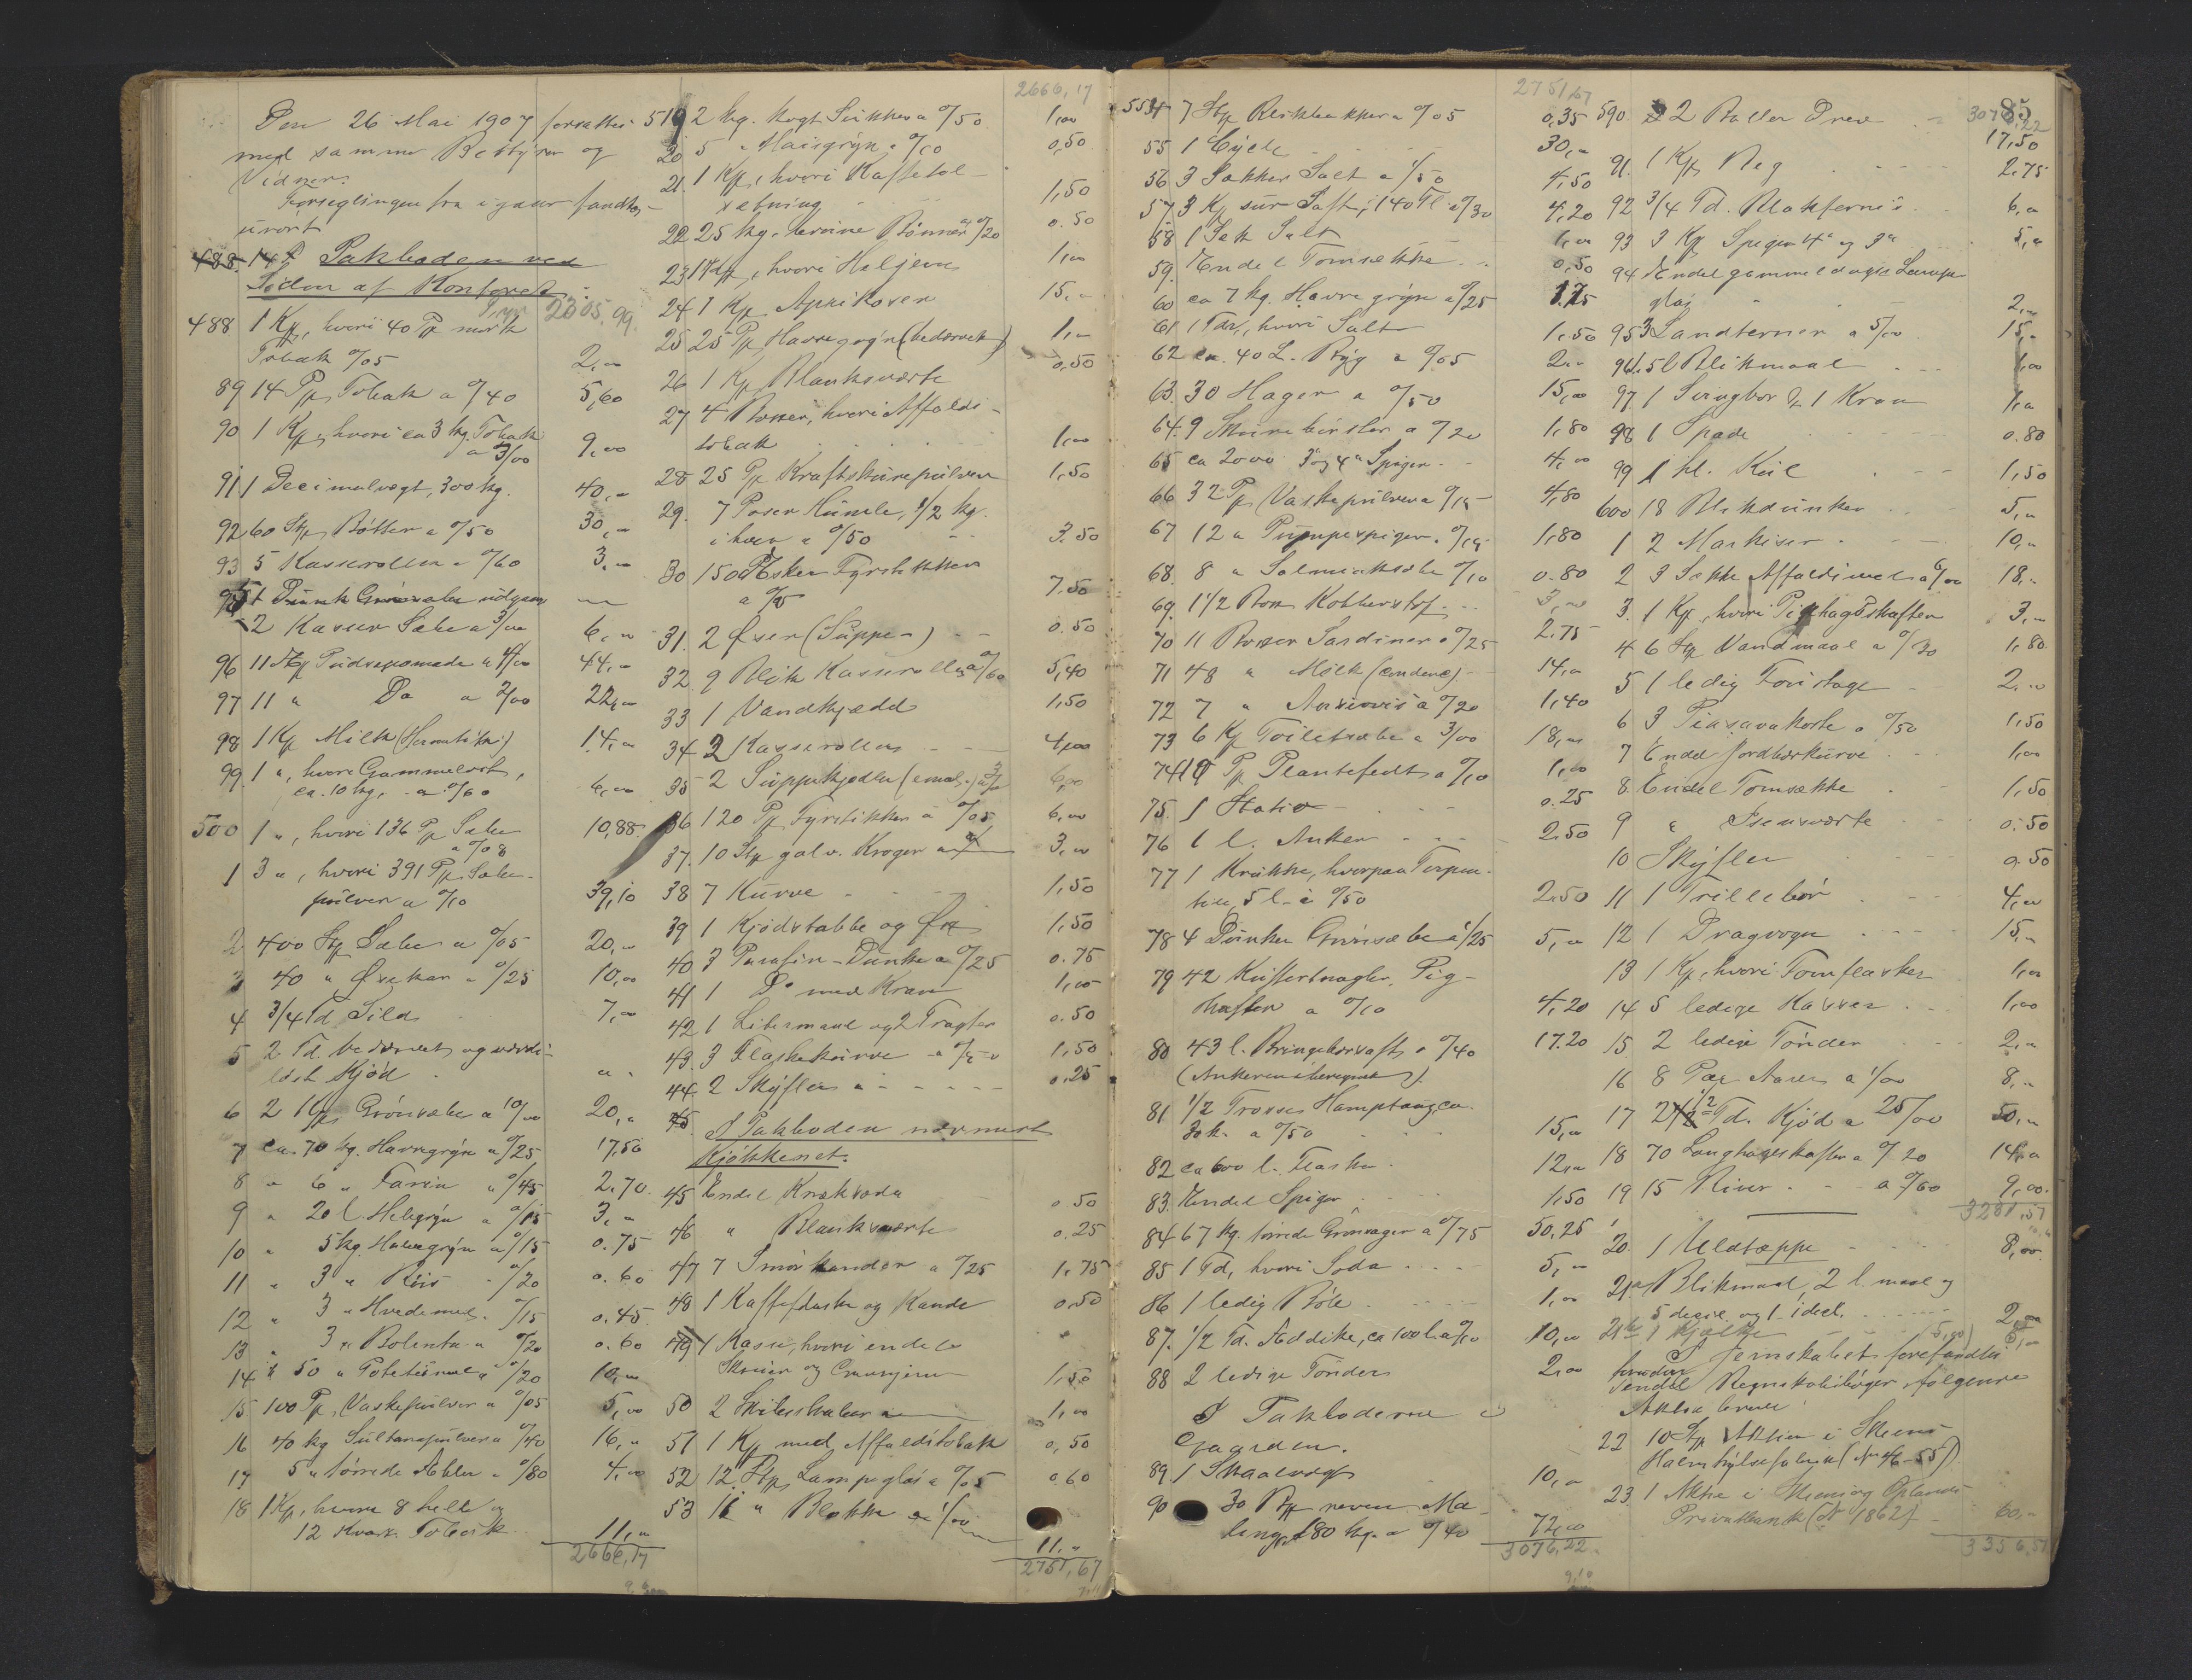 Den 26 Mai 1907 forsattes
med samme Bestyrer og
Vidner.
Forseglingen fra igaar fandtes
urørt
488 Pakboden ved
Siden af Kontoret
Tr. 2305,99
488 1 Kp, hvori 40 Pk mørk
Tobak 0/05 2,00
89 14 Pk Tobak a 0/40 5,60
90 1 Kp, hvori ca 3 kg. Tobak
a 3/00 9,00
91 1 Decimalvægt, 300 kg. 40,00
92 60 Stk Bøtter a 0/50 30,00
93 5 Kasseroller a 0/60 3,00
95 1 Dunk Grønsæbe udgaar
2 Kasser Sæbe a 3/00 6,00
96 11 Stk Pudsepomade a 4/00 44,00
97 11 " Do a 2/00 22,00
98 1 Kp Milk (Hermetikk) 14,00
99 1 ", hvori Gammelost,
ca. 10 kg. a 0/60 6,00
500 1 ", hvori 136 Pk Sæbe
a 0/08 10,88
1 3 ", hvori 391 Pk Sæbe-
pulver a 0/10 39,10
2 400 Stk Sæbe a 0/05 20,00
3 40 " Øsekar a 0/25 10,00
4 3/4 Td Sild 7,00
5 2 Td. bedærvet og værdi-
løst Kjød " "
6 2 Kp Grønsæbe a 10/00 20,00
7 ca. 70 kg. Havregryn a 0/25 17,50
8 " 6 " Farin a 0/45 2.70
9 " 20 l. Helgryn a 0/15 3,00
10 " 5 kg. Havregryn a 0/15 0.75
11 " 3 " Riis a 0/20 0.60
12 " 3 " Hvedemel a 0/15 0.45
13 " 3 " Bolenta a 0/20 0.60
14 " 50 " Potetesmel a 0/20 10,00
15 100 Pk, Vaskepulver a 0/05 5,00
16 40 kg Sultanspulver a 0/40 16,00
17 5 " tørrede Æbler a 0/80 4,00
18 1 Kp, hvori 8 hele og
12 Kvart. Tobak 11,00
2666,17
2666,17
519 2 kg. kogt Sukker a 0/50 1,00
20 5 " Maisgryn a 0/10 0,50
21. 1 Kp, hvori Kaffetil-
sætning 1,50
22 25 kg. brune Bønner a 0/20 0.50
23 1 Kp, hvori Haljem 1,00
24 1 Kp Aprikoser 15,00
25 25 Pk Havregryn (bedærvet) 1,00
26 1 Kp Blanksværte 0,50
27 4 Posser, hvori Affalds-
tobak 1,00
28 25 Pk Kraftskurepulver 1,50
29. 7 Poser Humle, 1/2 kg.
i hver a 0/50 3.50
30 150 Esker Fyrstikker
a 0/05 7.50
31. 2 Øser (Suppe-) 0.50
32 9 Blik Kasseroller a 0/60 5,40
33 1 Vandkjedel 1,50
34 2 Kasseroller 4,00
35 2 Suppekjedler (emal.) a 3/00 6,00
36 120 Pk Fyrstikker a 0/05 6,00
37. 10 Stk galv. Kroger 3,00
38 7 Kurve 1,50
39 1 Kjødstabbe og Øx 1,50
40 3 Parafin-Dunke a 0/25 0.75
41 1 Do med Kran 1,00
42 1 Litermaal og 2 Tragter 0.50
43. 3 Flaskekurve a 0/50 1,50
44 2 Skyfler 0,25
45 I Pakboden nærmest
Kjøkkenet.
45 Endel Knaksoda 0.50
46 " Blanksværte 0.25
47 7 Smørkander a 0/25 1.75
48 1 Kaffeflaske og Kande 0,50
49 1 Kasse, hvori endel
Skruer og 1,50
50 2 1,00
51 1 Kp med Affaldstobak 0,50
52 12 Stk Lampeglas a 0/05 0.60
53 11 " Blokke a 1/00 11.00
2751,67
2751,67
554 7 Stk Blikbakker a 0/05 0,35
55 1 Cycle 30,00
56 3 Sækker Salt a 1/50 4,50
57 3 Kp sur Saft, i 140 Fl a 0/30 4,20
58 1 Sæk Salt 1,00
59. Endel Tomsække 0,50
60 ca 7 kg. Havregryn a 0/25 1.75
61 1 Tdr, hvori Salt 1,50
62 ca. 40 L. Byg a 0/05 2,00
63. 30 Hager a 0/50 15,00
64. 9 Skurebørster a 0/20 1,80
65 ca 2000 3" og 4" Spiger 4,00
66 32 Pk Vaskepulver a 0/15 4,80
67 12 " Pumpespiger a 0/15 1,80
68. 8 " Salmiaksæbe 0/10 0.80
69. 1 1/2 Boss Kobberstof 3,00
70 11 Bosser Sardiner a 0/25 2.75
71 48 " Milk (cond.) 14,00
72 7 " Ansiovis a 0/20 1,40
73 6 Kp Toiletsæbe a 3/00 18,00
74 10 Pk Plantefedt a 0/10 1,00
75. 1 Stativ 0.25
76 1 l. Anker 2.50
77 1 Krukke, hvorpaa Terpen-
tin, 5 l. a 0/50 2.50
78 4 Dunker Grønsæbe a 1/25 5,00
79 42 Kuffertnagler, Pig-
skafter a 0/10 4,20
80 43 l. Bringebærsaft a 0/40 17.20
(Ankeren iberegnet).
81 1/2 Trosse Hamptaug, ca.
30 k. a 0/50 15,00
82 ca 600 l. Flasker 12,00
83. Endel Spiger 1,50
84 67 kg. tørrede Grønsager a 0/75 50,25
85 1 Td, hvori Soda 5,00
86 1 ledig Bøle 1,00
87. 1/2 Td. Eddike, ca 100 l. a 0/10 10,00
88 2 ledige Tønder 2,00
I Pakboderne i
Gaarden.
89 1 Skaalvægt 10,00
90 30 Stk reven Ma-
ling, 180 kg. a 0/40 72,00
3076,22
85
3076,22
590 2 Baller Drev 17,50
91. 1 Kp Beg 2.75
92 3/4 Td. Blakfernis 6,00
93 3 Kp Spiger 4" og 3" 5,00
94 Endel gammeldagse Lampe-
glas 2,00
95 3 Landterner a 5/00 15,00
96 1. 5 l Blikmaal 1,00
97 1 Svingbor & 1 Kran 1,00
98 1 Spade 0.80
99 1 hl. Kul 1,50
600 18 Blikdunker 5,00
1 2 Markiser 10,00
2 3 Sække Affaldsmel a 6/00 18,00
3. 1 Kp, hvori Pighagskafter 3,00
4 6 Stk Vandmaal a 0/30 1,80
5 1 ledig Foustage 2,00
6 3 Piazavakoste a 0/50 1,50
7 Endel Jordbærkurve 1,00
8. Endel Tomsække 1,50
9 " Isensværte 0.50
10 Skyfler 0.50
11 1 Trillebør 4,00
12 1 Dragvogn 15,00
13 1 Kp, hvori Tomflasker 1,00
14 5 ledige Kasser 1,00
15 2 ledige Tønder 2,00
16 8 Par Aarer a 1/00 8,00
17 2 Td. Kjød a 25/00 50,00
18 70 Langhageskafter a 0/20 14,00
19 15 River a 0/60 9,00
3281,57
20 1 Uldtæppe 8,00
21a Blikmaal, 2 l. maal og
5 decil. og 1 idetl. 2,00
21b 1 Kjælke 5,00
I Jernskabet forefandtes
foruden
endel Regnskabsbøger følgende
Aktiebreve
22 10 Stk Aktier i Skiens
Halmhylsefabrik (No 46-55)
23. 1 Aktie i Skiens og Oplands
Privatbank (No 1862) 60,00
3356,57